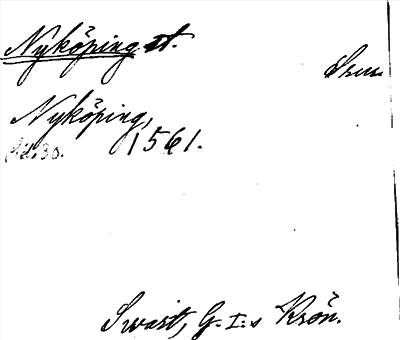 Nyköping st.
Nyköping,
1561.
Swart, G. I:s Krön.